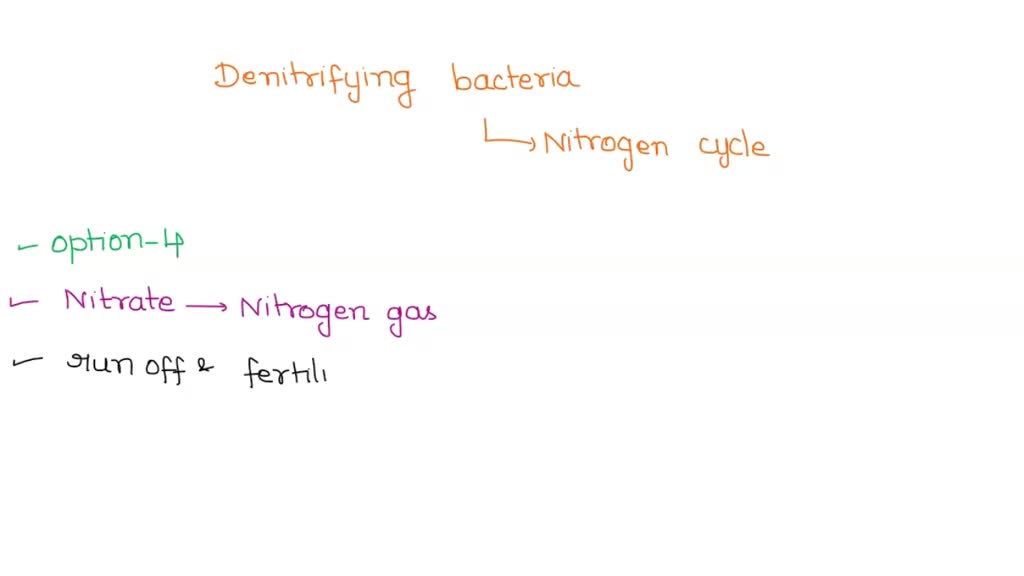 Denitrifying bacteria
↳ Nitrogen cycle
✓ option-4
✓ Nitrate → Nitrogen gas
✓ run off & fertili